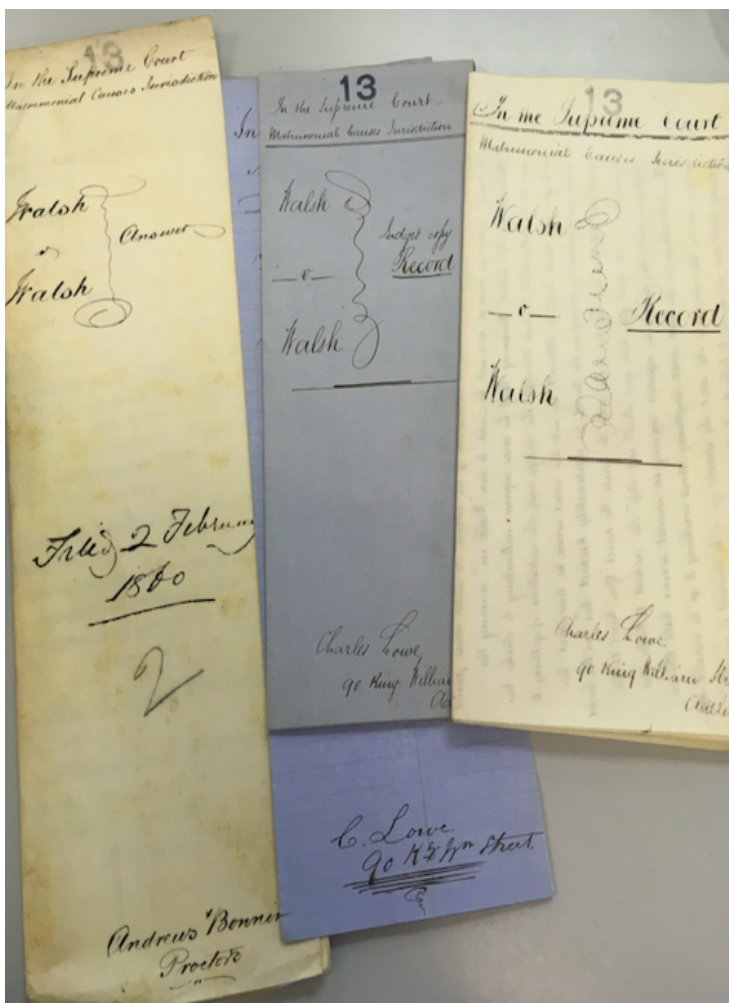 13
In the Supreme Court
Matrimonial Causes Jurisdiction
Walsh
v
Walsh
Answer
Filed 2 February
1860
2
Andrews & Bonnin
Proctors
In
C. Lowe
90 Kg Wm Street
13
In the Supreme Court
Matrimonial Causes Jurisdiction
Walsh
v
Walsh
Judges copy
Record
Charles Lowe
90 King William
13
In the Supreme Court
Matrimonial Causes Jurisdiction
Walsh
v
Walsh
Record
Charles Lowe
90 King William